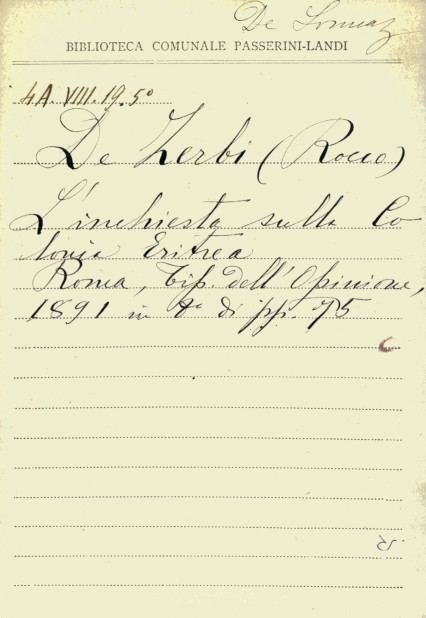 De Sonnaz
BIBLIOTECA COMUNALE PASSERINI-LANDI
4A. VIII. 19. 5º
De Zerbi (Rocco)
L'inchiesta sulla Co
lonia Eritrea
Roma, Tip. dell'Opinione,
1891 in 8º di pp. 75